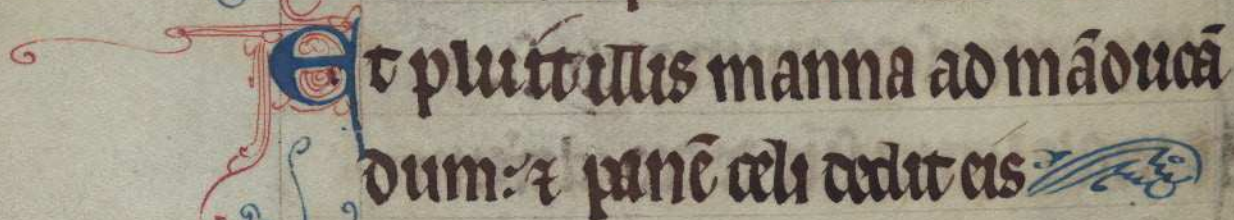 Et pluit illis manna ad mãducã
dum: ⁊ panẽ celi dedit eis